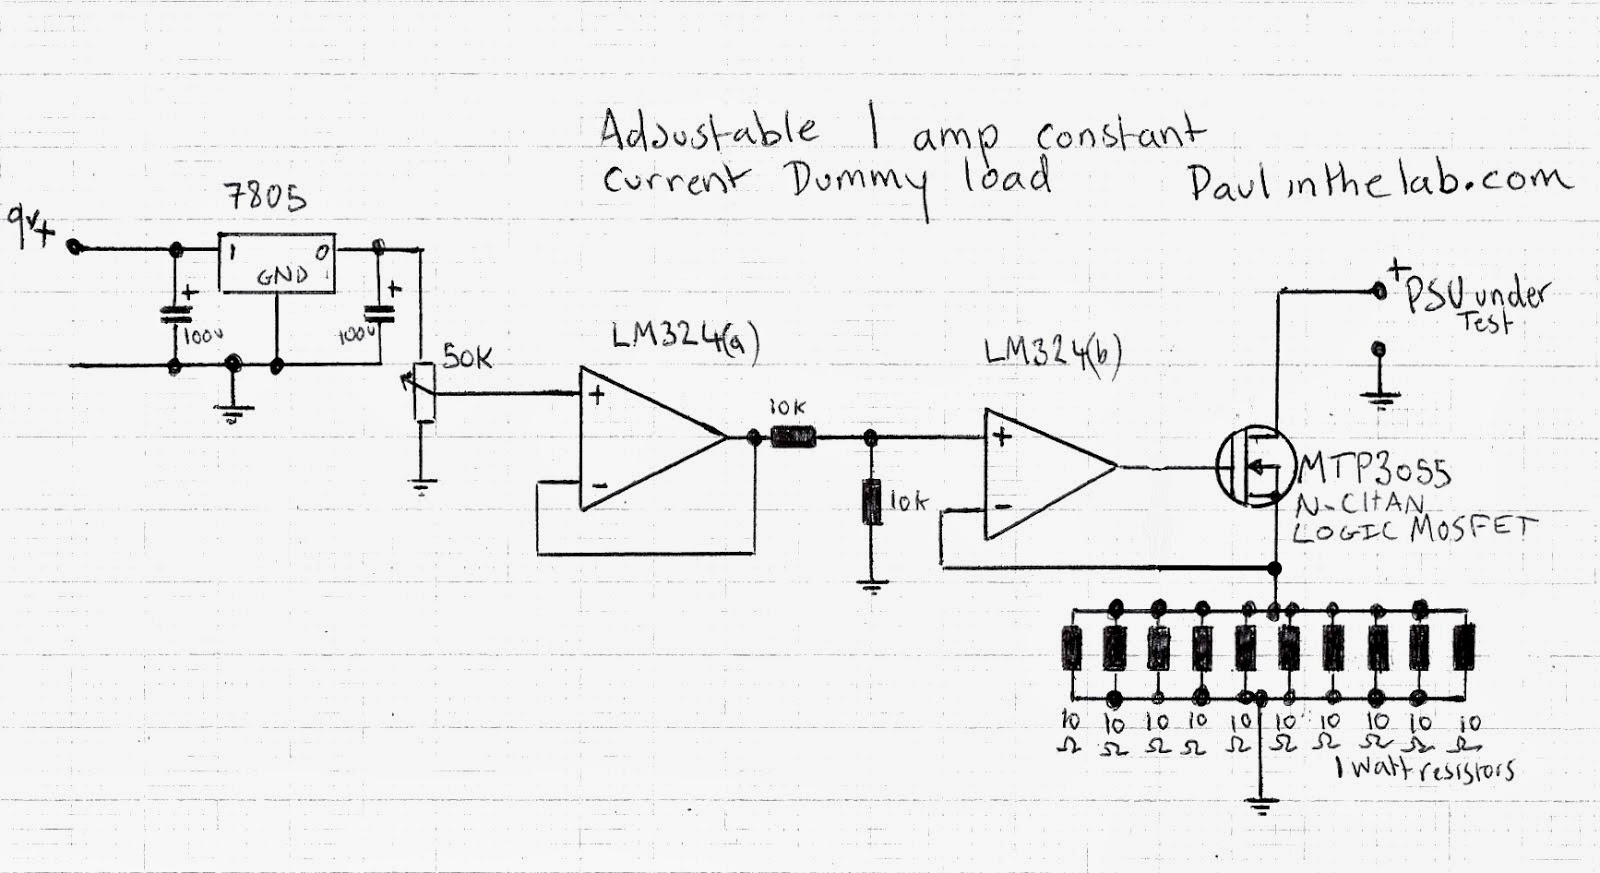 Adjustable 1 amp constant
current Dummy load
Paulinthelab.com
7805
9v+
1
O
GND
+
100u
+
100u
50K
LM324(a)
+
-
10k
10k
LM324(b)
+
-
+
PSU under
Test
MTP3055
N-CHAN
LOGIC MOSFET
10 10 10 10 10 10 10 10 10 10
Ω Ω Ω Ω Ω Ω Ω Ω Ω Ω
1 Watt resistors